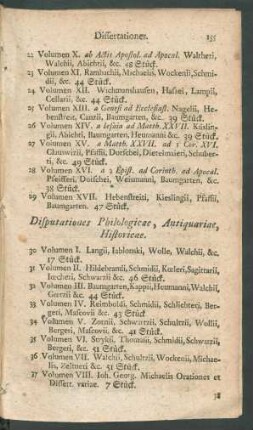 Dissertationes. 155
22 Volumen X. ab Actis Apostol. ad Apocal. Waltheri,
Walchii, Abichtii, &c. 48 Stück.
23 Volumen XI. Rambachii, Michaelis, Wockenii, Schmi-
dii, &c. 44 Stück.
24 Volumen XII. Wichmanshausen, Hasaei, Lampii,
Cellarii, &c. 44 Stück.
25 Volumen XIII. a Genesi ad Ecclesiast. Nagelii, He-
benstreit, Baumgarten, &c. 39 Stück.
26 Volumen XIV. a Iesaia ad Matth. XXVII. Kiesling-
gii, Abichti, Baumgarten, &c. 39 Stück.
27 Volumen XV. a Matth. XXVII. ad 1 Cor. XVI.
Chrysandri, Pfaffii, Dorschei, Dietelmaieri, Schuber-
ti, &c. 49 Stück.
28 Volumen XVI. a 2 Epist. ad Corinth. ad Apocal.
Pfeifferi, Dorschei, Weismanni, Baumgarten, &c.
38 Stück.
29 Volumen XVII. Hebenstreitii, Kieslingii, Pfaffii,
Baumgarten. 47 Stück.
Disputationes Philologicae, Antiquariae,
Historicae.
30 Volumen I. Langii, Iablonski, Wolle, Walchii, &c.
17 Stück.
31 Volumen II. Hildebrandi, Schmidii, Kæleri, Sagittarii,
Schwarzii &c. 46 Stück.
32 Volumen III. Baumgarten, Kappii, Heumanni, Walchii,
Gerzii &c. 44 Stück.
33 Volumen IV. Reimboldi, Schmidii, Schlichteri, Ber-
geri, Mascovii &c. 43 Stück
34 Volumen V. Zornii, Schwarzii, Schultzii, Wollii,
Bergeri, Mascovii &c. 46 Stück.
35 Volumen VI. Strykii, Thomasii, Schmidii, Schwarzii,
Bergeri, &c. 52 Stück.
36 Volumen VII. Walchii, Schultzii, Wockenii, Michae-
lis, Zeltneri &c. 51 Stück.
37 Volumen VIII. Ioh. Georg. Michaelis Orationes et
Dissert. variae. 7 Stück.
38